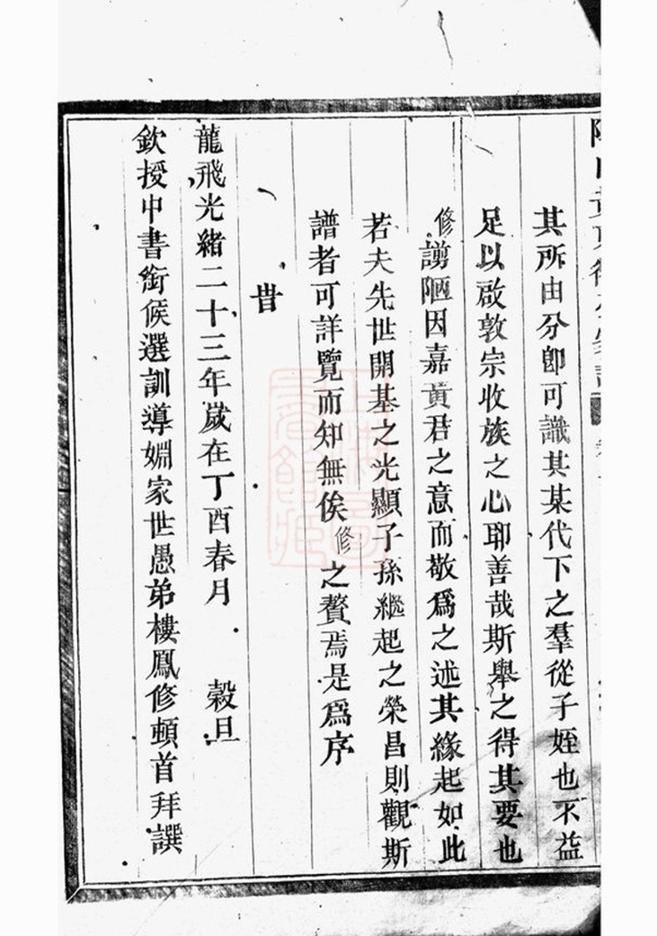 其所由分卽可識其某代下之羣從子姪也不益
足以啟敦宗收族之心耶善哉斯舉之得其要也
修謭陋因嘉黄君之意而敬爲之述其緣起如此
若夫先世開基之光顯子孫繼起之榮昌則觀斯
譜者可詳覽而知無俟修之贅焉是爲序
旹
龍飛光緒二十三年歲在丁酉春月 穀旦
欽授中書銜候選訓導姻家世愚弟樓鳳修頓首拜譔